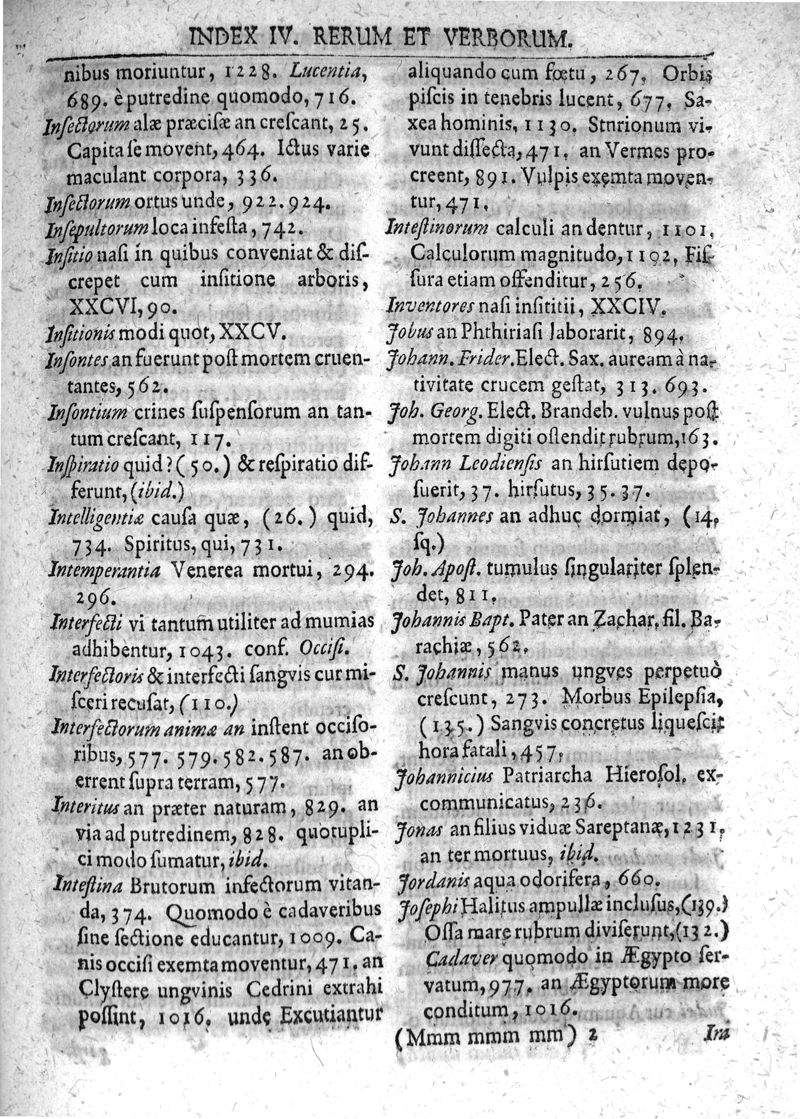 INDEX IV. RERUM ET VERBORUM.
nibus moriuntur, 1228. Lucentia,
689. è putredine quomodo, 716.
Inſectorum alæ præciſæ an creſcant, 25.
Capita ſe movent, 464. Ictus varie
maculant corpora, 336.
Inſectorum ortus unde, 922. 924.
Inſepultorum loca infeſta, 742.
Inſitio naſi in quibus conveniat & diſ-
crepet cum inſitione arboris,
XXCVI, 90.
Inſitionis modi quot, XXCV.
Inſontes an fuerunt poſt mortem cruen-
tantes, 562.
Inſontium crines ſuſpenſorum an tan-
tum creſcant, 117.
Inſpiratio quid? (50.) & reſpiratio dif-
ferunt, (ibid.)
Intelligentiæ cauſa quæ, (26.) quid,
734. Spiritus, qui, 731.
Intemperantia Venerea mortui, 294.
296.
Interfecti vi tantum utiliter ad mumias
adhibentur, 1043. conf. Occiſi.
Interfectoris & interfecti ſangvis cur mi-
ſceri recuſat, (110.)
Interfectorum animæ an inſtent occiſo-
ribus, 577. 579. 582. 587. an ob-
errent ſupra terram, 577.
Interitus an præter naturam, 829. an
via ad putredinem, 828. quotupli-
ci modo ſumatur, ibid.
Inteſtina Brutorum infectorum vitan-
da, 374. Quomodo è cadaveribus
ſine ſectione educantur, 1009. Ca-
nis occiſi exemta moventur, 471. an
Clyſtere ungvinis Cedrini extrahi
poſſint, 1016. unde Excutiantur
aliquando cum fœtu, 267. Orbis
piſcis in tenebris lucent, 677. Sa-
xea hominis, 1130. Stnrionum vi-
vunt diſſecta, 471. an Vermes pro-
creent, 891. Vulpis exemta moven-
tur, 471.
Inteſtinorum calculi an dentur, 1101.
Calculorum magnitudo, 1102. Fiſ-
ſura etiam offenditur, 256.
Inventores naſi inſititii, XXCIV.
Jobus an Phthiriaſi laborarit, 894.
Johann. Frider. Elect. Sax. auream à na-
tivitate crucem geſtat, 313. 693.
Joh. Georg. Elect. Brandeb. vulnus poſt
mortem digiti oſtendit rubrum, 163.
Johann Leodienſis an hirſutiem depo-
ſuerit, 37. hirſutus, 35. 37.
S. Johannes an adhuc dormiat, (14.
ſq.)
Joh. Apoſt. tumulus ſingulariter ſplen-
det, 811.
Johannis Bapt. Pater an Zachar. fil. Ba-
rachiæ, 562.
S. Johannis manus ungves perpetuò
creſcunt, 273. Morbus Epilepſia,
(135.) Sangvis concretus liqueſcit
hora fatali, 457.
Johannicius Patriarcha Hieroſol. ex-
communicatus, 236.
Jonas an filius viduæ Sareptanæ, 1231.
an ter mortuus, ibid.
Jordanis aqua odorifera, 660.
Joſephi Halitus ampullæ incluſus, (139.)
Oſſa mare rubrum diviſerunt, (132.)
Cadaver quomodo in Ægypto ſer-
vatum, 977. an Ægyptorum more
conditum, 1016.
(Mmm mmm mm) 2 Ira